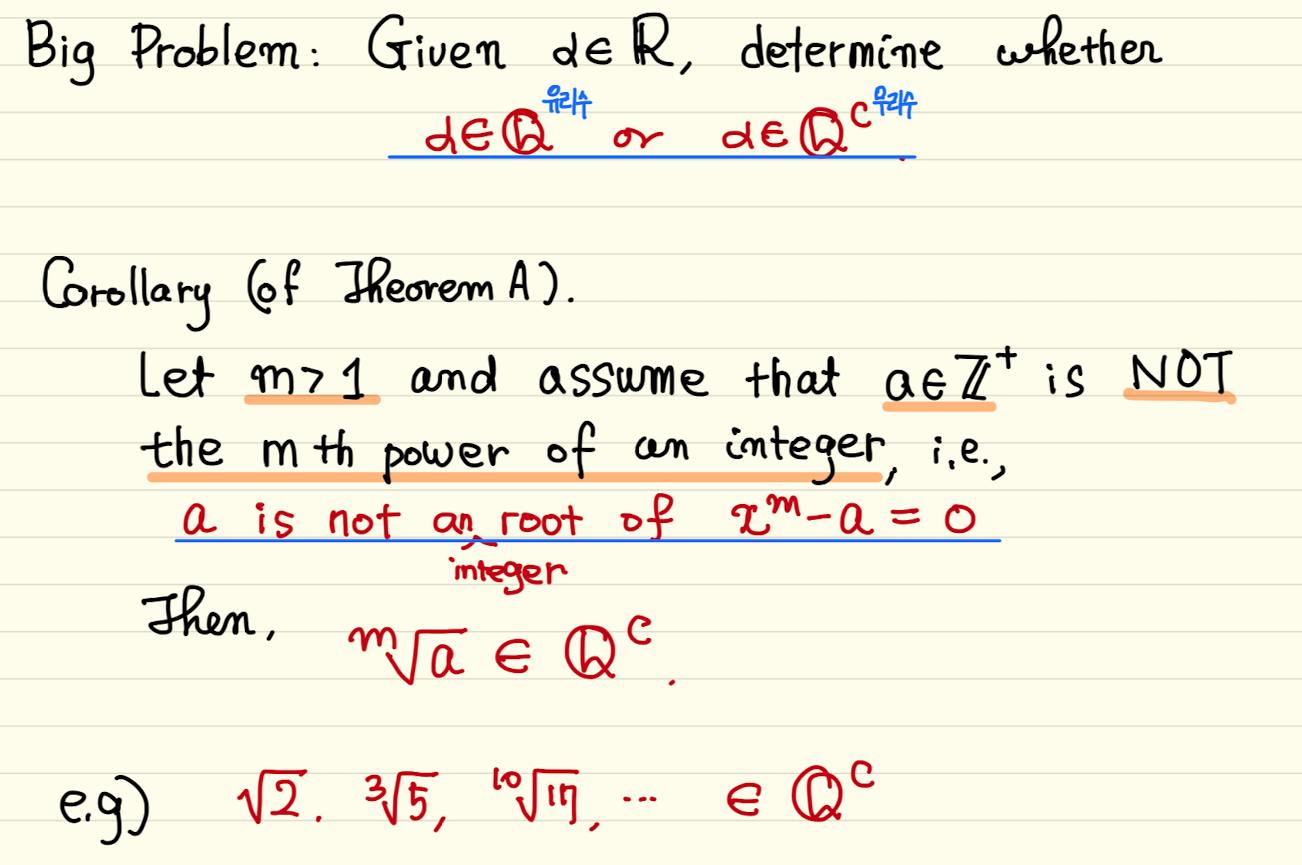 Big Problem: Given α∈ℝ, determine whether
α∈ℚ 유리수 or α∈ℚᶜ 무리수
Corollary (of Theorem A).
Let m>1 and assume that a∈ℤ⁺ is NOT
the m th power of an integer, i.e.,
a is not an integer root of xᵐ-a=0
Then, ᵐ√a ∈ ℚᶜ.
e.g) √2, ³√5, ¹⁰√17, ⋯ ∈ ℚᶜ